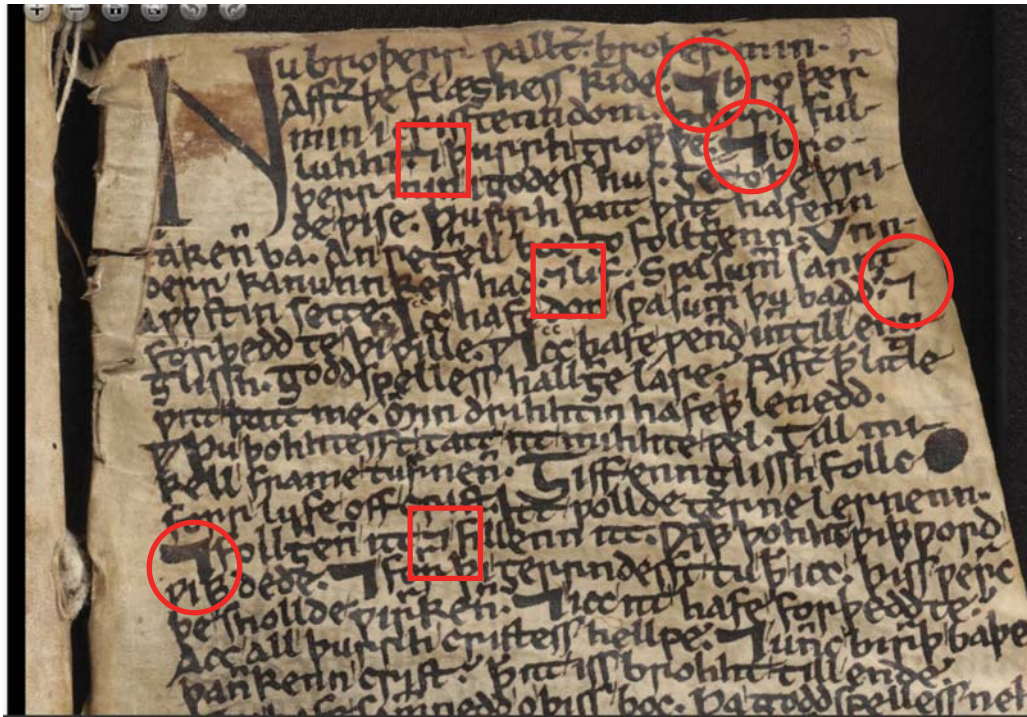 Nu broþerr ƿallt̄. broþerr min.
Afft̄ þe flæshess kide. ⁊ broþerr
min i crisstenndom. þurrh ful-
luhht. ⁊ þurrh troƿƿþe. ⁊ bro-
þerr min i godess hus. ȝet o þe þri-
de ƿise. þurrh þatt ƿitt hafenn
takeñ ba. an reȝhell boc to follȝhenn. Unn-
derr kanunnkess had. ⁊ lif. Sƿa sum̄ sannt
aƿƿstin sette. Icc hafe don sƿa sum̄ þu badd. ⁊
forþedd te þin ƿille. Icc hafe ƿennd inntill enn-
glissh. goddspelless hallȝhe lare. Afft̄ þꝥ litle
ƿitt þatt me. min drihhtin hafeþþ lenedd.
Þu þohhtesst tatt itt mihhte ƿel. till mi-
kell frame turrneñ. ȝiff ennglissh follc
forr lufe off crist. itt ƿollde ȝerne lernenn.
⁊ follȝheñ itt. ⁊ fillenn itt. ƿiþþ þohht. ƿiþþ ƿord.
ƿiþþ dede. ⁊ forrþi ȝerrndesst tu þꝥ icc. þiss ƿerrc
þe shollde ƿirrkeñ. ⁊ icc itt hafe forþedd te.
Acc all þurrh cristess hellpe. ⁊ unnc birrþ baþe
þannkenn crist. þatt iss brohht till ende.
sammnedd o þiss boc. þa goddspelless neh